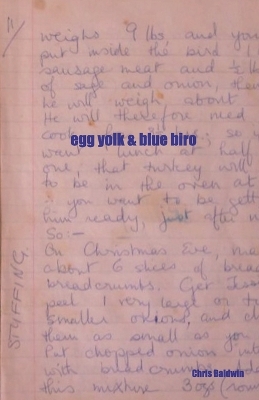 11/
weighs 9 lbs, and you
put inside the bird 1
sausage meat and ½ lb
of sage and onion, then
he will weigh about
He will therefore need
egg yolk & blue biro
want lunch at half
one, that turkey will
to be in the oven at
you want to be get
him ready, just after n
So:-
On Christmas Eve, ma
about 6 slices of bread
breadcrumbs. Get Jess
peel 1 very large or tw
smaller onions, and ch
them as small as you
Put chopped onion
with breadcrumbs
this mixture 3 ozs (rou
STUFFING
Chris Baldwin